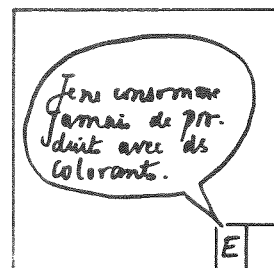 Je ne consomme
jamais de pro-
duits avec des
colorants.
E